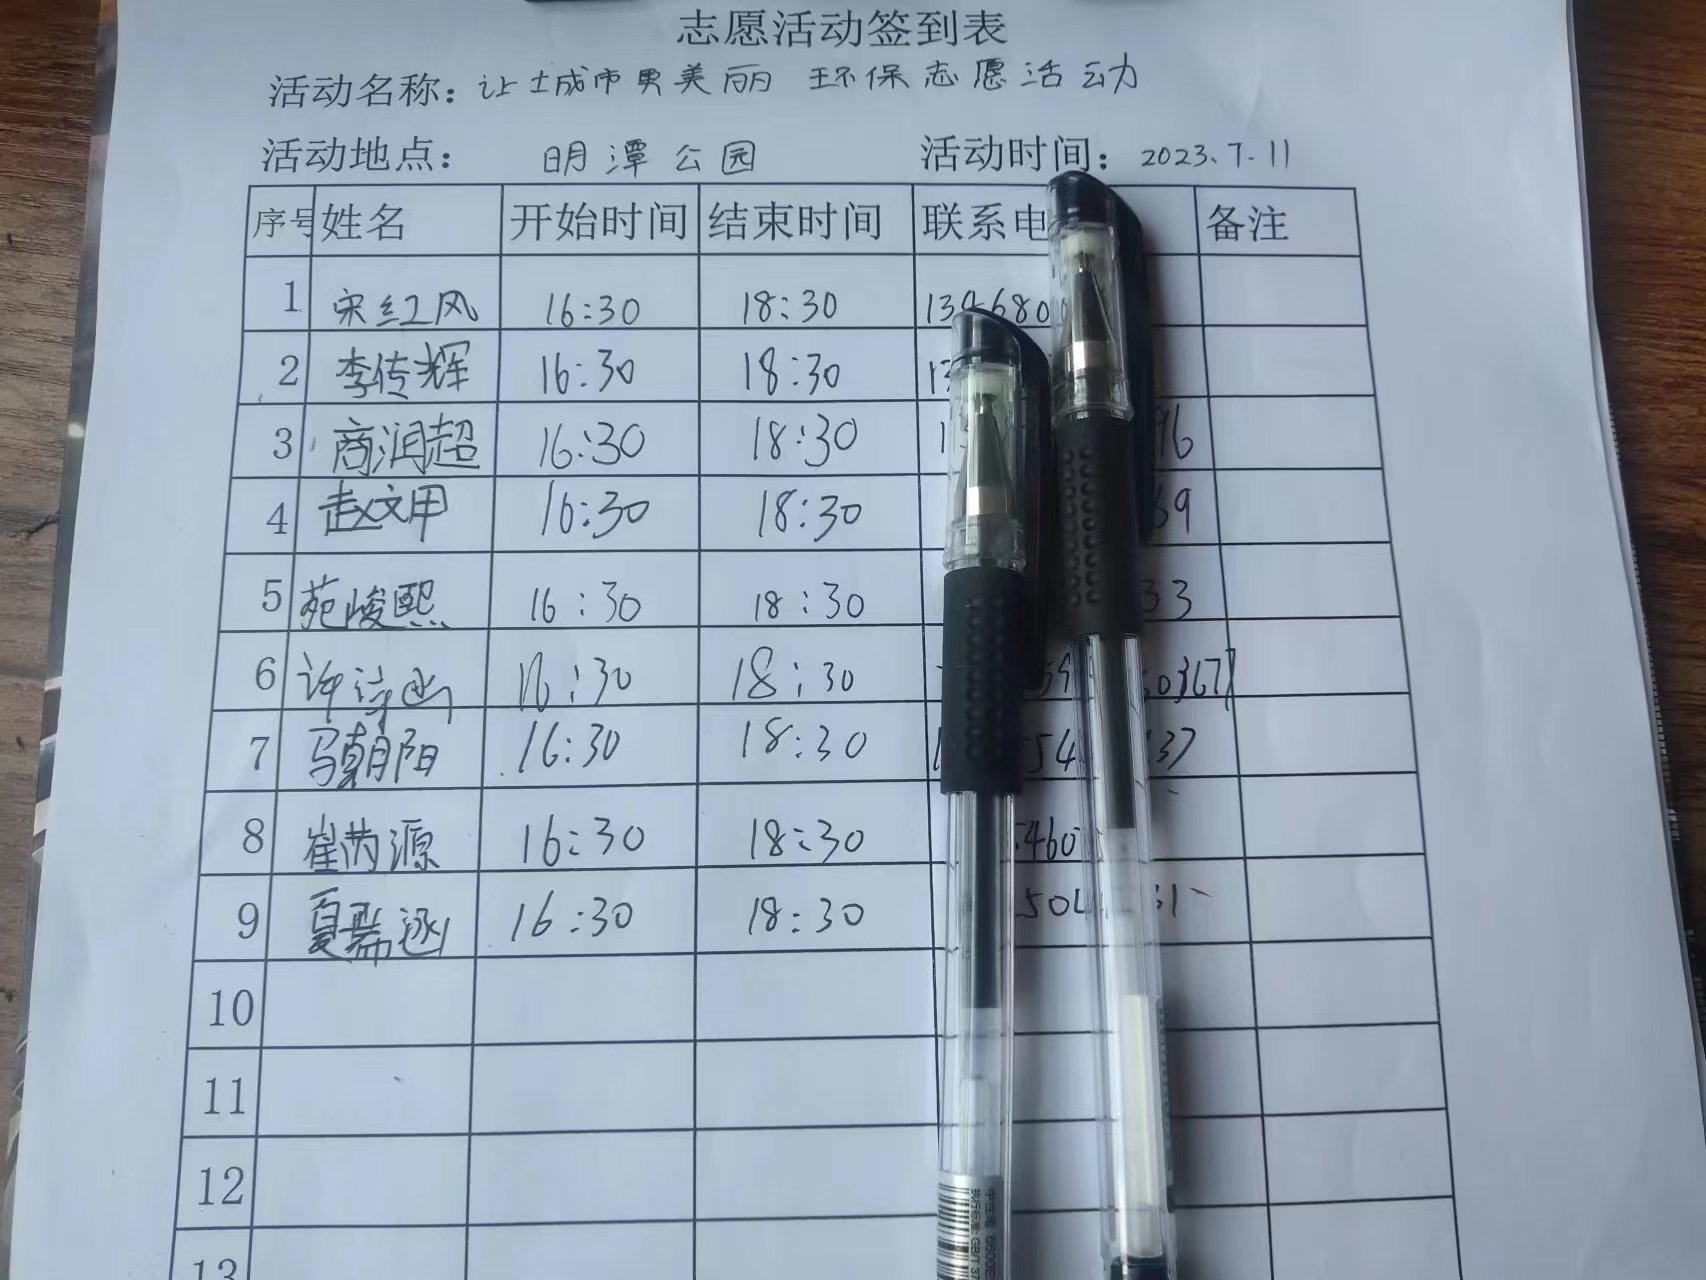 志愿活动签到表
活动名称：让城市更美丽 环保志愿活动
活动地点：明潭公园 活动时间：2023.7.11
序号 姓名 开始时间 结束时间 联系电 备注
1 宋红风 16:30 18:30 1346800
2 李传辉 16:30 18:30 13
3 商润超 16:30 18:30 1 96
4 赵文甲 16:30 18:30 39
5 苑峻熙 16:30 18:30 33
6 许 16:30 18:30 59 50367
7 马朝阳 16:30 18:30 1 54 37
8 崔芮源 16:30 18:30 5460
9 夏瑞涵 16:30 18:30 50 31
10
11
12
13